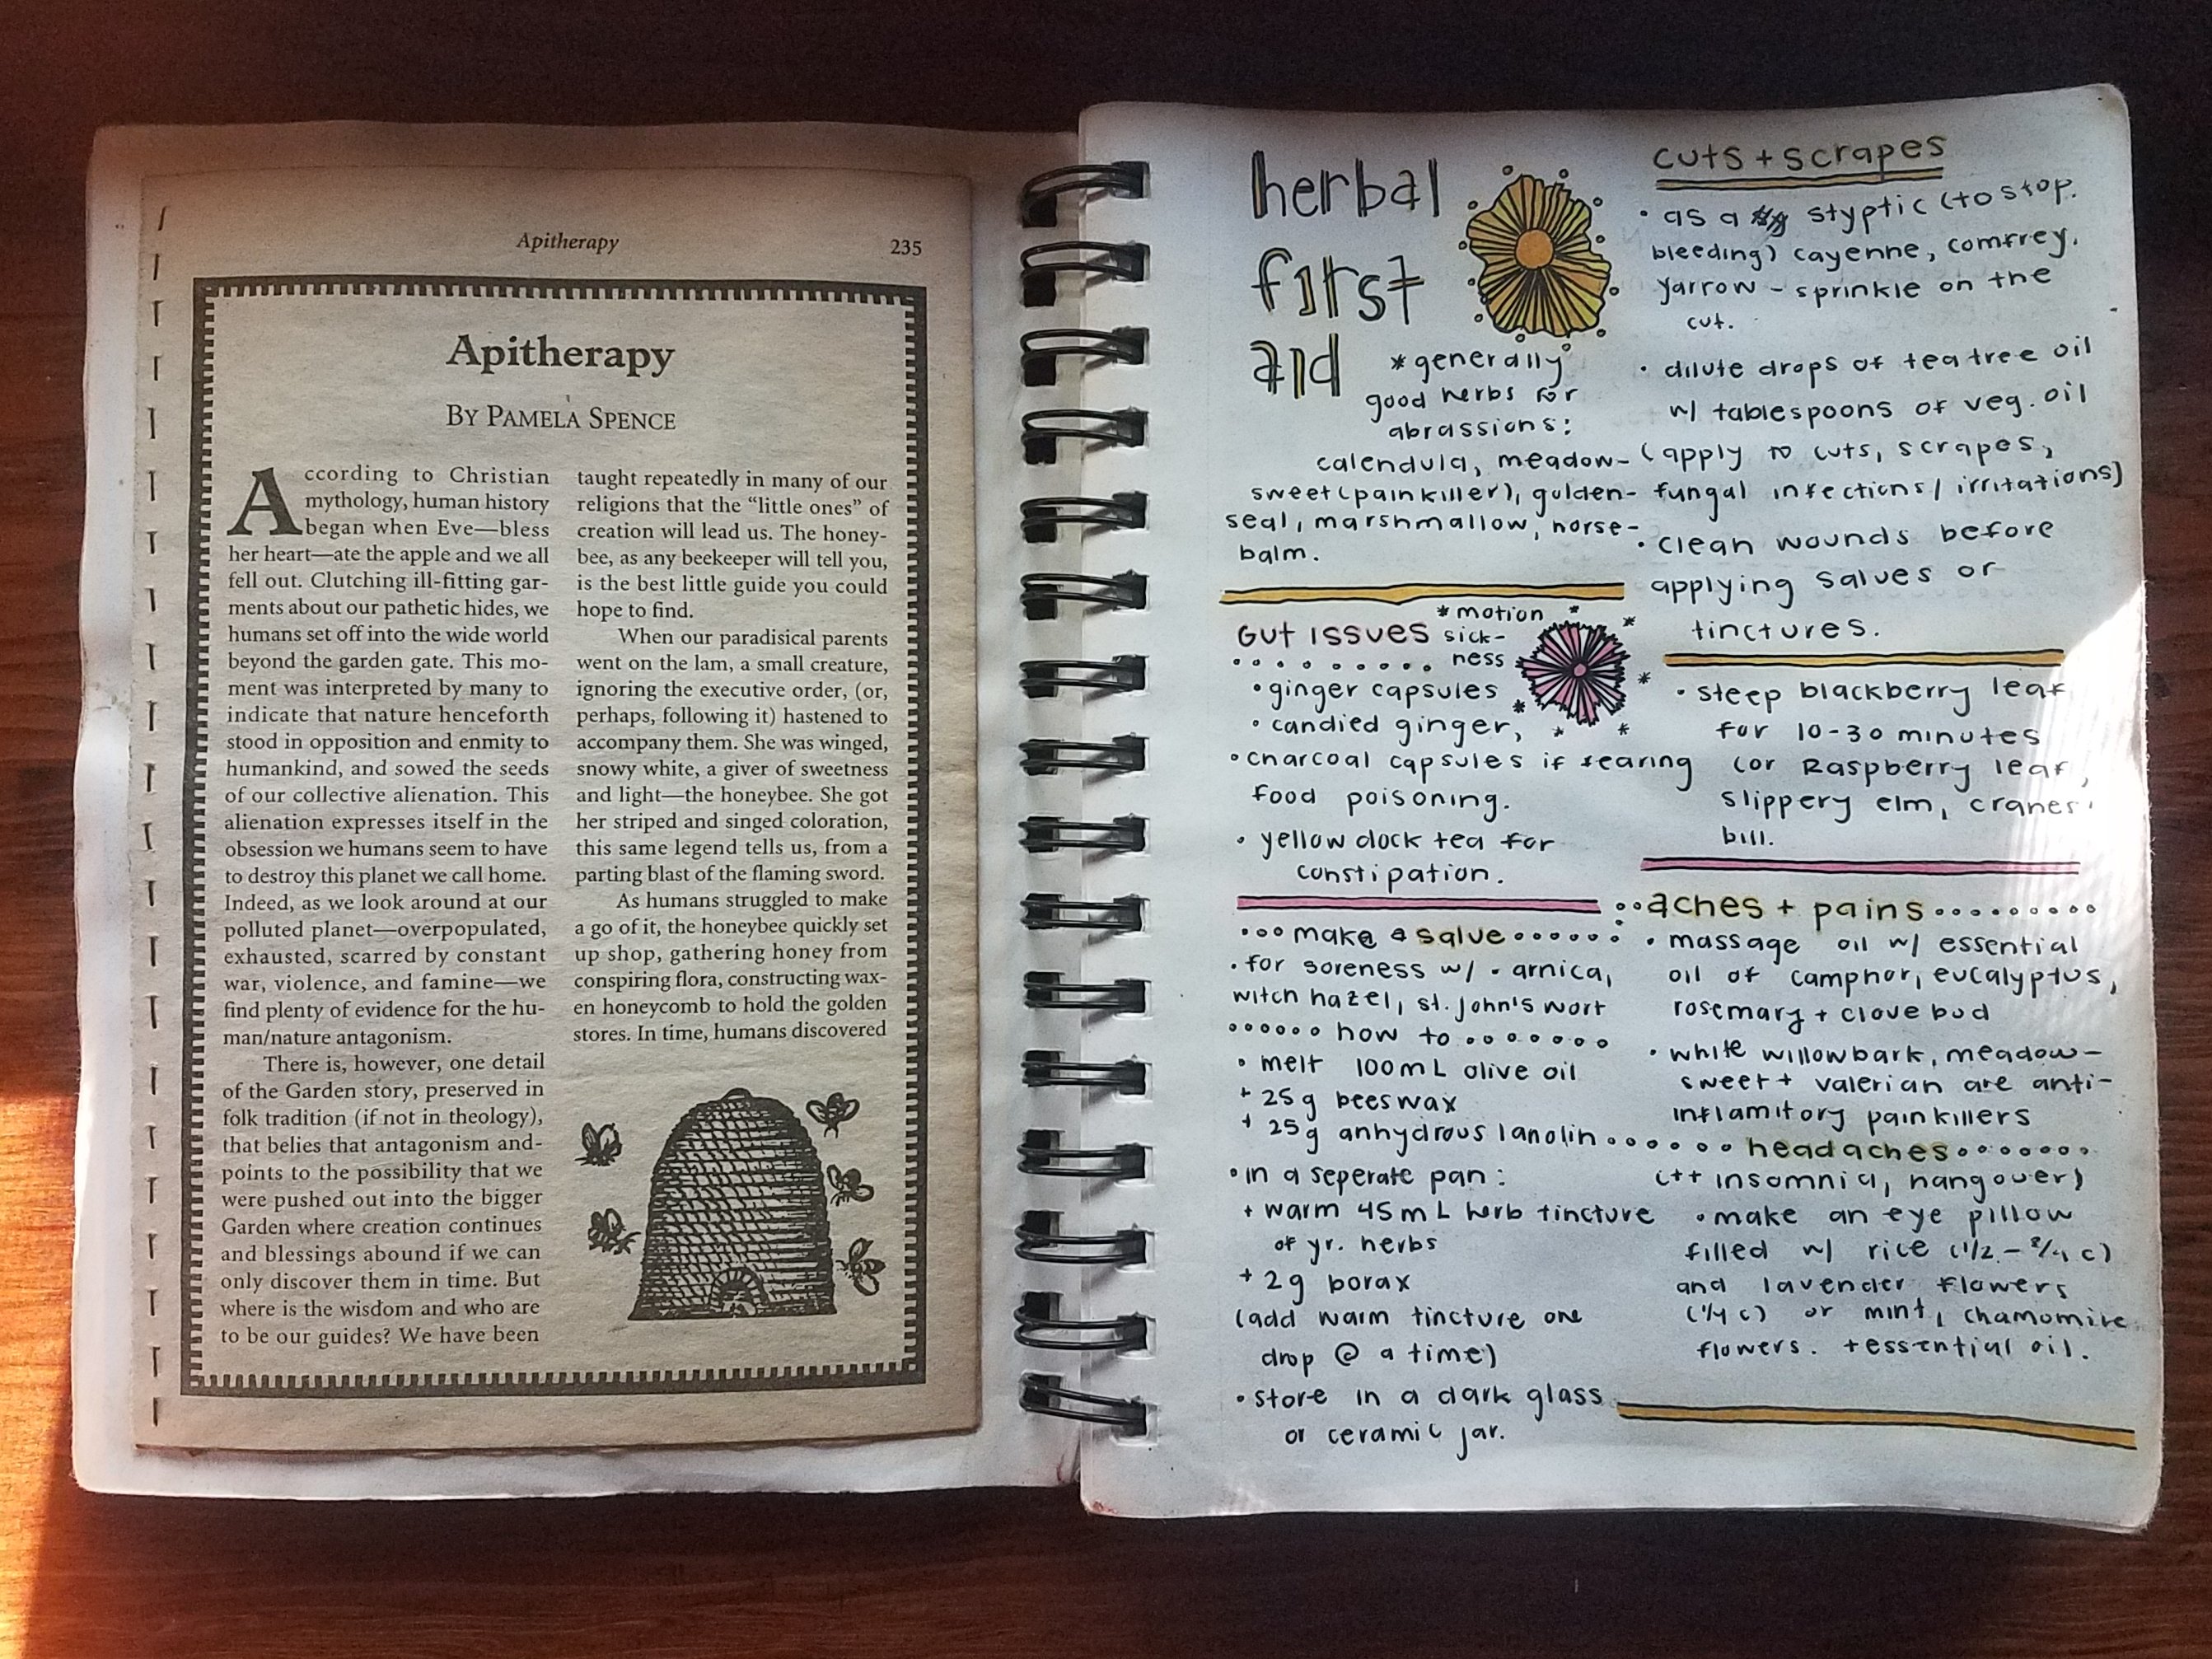 Apitherapy
235
Apitherapy
BY PAMELA SPENCE
According to Christian
mythology, human history
began when Eve—bless
her heart—ate the apple and we all
fell out. Clutching ill-fitting gar-
ments about our pathetic hides, we
humans set off into the wide world
beyond the garden gate. This mo-
ment was interpreted by many to
indicate that nature henceforth
stood in opposition and enmity to
humankind, and sowed the seeds
of our collective alienation. This
alienation expresses itself in the
obsession we humans seem to have
to destroy this planet we call home.
Indeed, as we look around at our
polluted planet—overpopulated,
exhausted, scarred by constant
war, violence, and famine—we
find plenty of evidence for the hu-
man/nature antagonism.
There is, however, one detail
of the Garden story, preserved in
folk tradition (if not in theology),
that belies that antagonism and-
points to the possibility that we
were pushed out into the bigger
Garden where creation continues
and blessings abound if we can
only discover them in time. But
where is the wisdom and who are
to be our guides? We have been
taught repeatedly in many of our
religions that the “little ones” of
creation will lead us. The honey-
bee, as any beekeeper will tell you,
is the best little guide you could
hope to find.
When our paradisical parents
went on the lam, a small creature,
ignoring the executive order, (or,
perhaps, following it) hastened to
accompany them. She was winged,
snowy white, a giver of sweetness
and light—the honeybee. She got
her striped and singed coloration,
this same legend tells us, from a
parting blast of the flaming sword.
As humans struggled to make
a go of it, the honeybee quickly set
up shop, gathering honey from
conspiring flora, constructing wax-
en honeycomb to hold the golden
stores. In time, humans discovered
herbal
first
aid
*generally
good herbs for
abrassions:
calendula, meadow-
sweet (painkiller), golden-
seal, marshmallow, horse-
balm.
Gut issues
*motion
sick-
ness
• ginger capsules
• candied ginger,
• charcoal capsules if fearing
food poisoning.
• yellow dock tea for
constipation.
make a salve
• for soreness w/ • arnica,
witch hazel, st. john's wort
how to
• melt 100mL olive oil
+ 25g beeswax
+ 25g anhydrous lanolin
• in a seperate pan:
+ warm 45mL herb tincture
of yr. herbs
+ 2g borax
(add warm tincture one
drop @ a time)
• store in a dark glass
or ceramic jar.
cuts + scrapes
• as a styptic (to stop
bleeding) cayenne, comfrey,
yarrow - sprinkle on the
cut.
• dilute drops of tea tree oil
w/ tablespoons of veg. oil
(apply to cuts, scrapes,
fungal infections/irritations)
• clean wounds before
applying salves or
tinctures.
• steep blackberry leaf
for 10-30 minutes
(or Raspberry leaf,
slippery elm, cranes
bill.
aches + pains
• massage oil w/ essential
oil of camphor, eucalyptus,
rosemary + clove bud
• white willowbark, meadow-
sweet + valerian are anti-
inflamitory painkillers
headaches
(++ insomnia, hangover)
• make an eye pillow
filled w/ rice (1/2 - 3/4 c)
and lavender flowers
(1/4 c) or mint, chamomile
flowers. + essential oil.